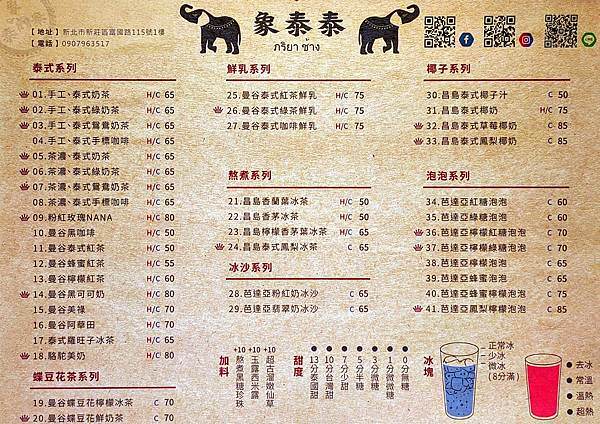 【地址】新北市新莊區富國路115號1樓
【電話】0907963517
象泰泰
ภริยา ช้าง
泰式系列
01.手工、泰式奶茶 H/C 65
02.手工、泰式綠奶茶 H/C 65
03.手工、泰式鴛鴦奶茶 H/C 65
04.手工、泰式手標咖啡 H/C 65
05.茶濃、泰式奶茶 H/C 65
06.茶濃、泰式綠奶茶 H/C 65
07.茶濃、泰式鴛鴦奶茶 H/C 65
08.茶濃、泰式手標咖啡 H/C 65
09.粉紅玫瑰NANA H/C 80
10.曼谷黑咖啡 H/C 50
11.曼谷泰式紅茶 H/C 50
12.曼谷蜂蜜紅茶 H/C 55
13.曼谷檸檬紅茶 H/C 60
14.曼谷黑可可奶 H/C 80
15.曼谷美祿 H/C 70
16.曼谷阿華田 H/C 70
17.泰式羅旺子冰茶 H/C 65
18.駱駝美奶 H/C 80
蝶豆花茶系列
19.曼谷蝶豆花檸檬冰茶 C 70
20.曼谷蝶豆花鮮奶茶 C 70
鮮乳系列
25.曼谷泰式紅茶鮮乳 H/C 75
26.曼谷泰式綠茶鮮乳 H/C 75
27.曼谷泰式咖啡鮮乳 H/C 75
熬煮系列
21.昌島香蘭葉冰茶 H/C 50
22.昌島香茅冰茶 H/C 50
23.昌島檸檬香茅冰茶 H/C 65
24.昌島泰式鳳梨冰茶 C 65
冰沙系列
28.芭達亞粉紅奶冰沙 C 65
29.芭達亞翡翠奶冰沙 C 65
椰子系列
30.昌島泰式椰子汁 C 50
31.昌島泰式椰奶 H/C 75
32.昌島泰式草莓椰奶 C 85
33.昌島泰式鳳梨椰奶 C 85
泡泡系列
34.芭達亞紅糖泡泡 C 60
35.芭達亞綠糖泡泡 C 60
36.芭達亞檸檬紅糖泡泡 C 70
37.芭達亞檸檬綠糖泡泡 C 70
38.芭達亞檸檬泡泡 C 65
39.芭達亞蜂蜜泡泡 C 65
40.芭達亞蜂蜜檸檬泡泡 C 75
41.芭達亞鳳梨檸檬泡泡 C 85
加料
+10 熬煮黑糖珍珠
+10 玉露西米露
+10 超古溜嫩仙草
甜度
13分泰國甜
10分台灣甜
7分少甜
5分半糖
3分微糖
1分微微糖
0分無糖
冰塊
正常冰
少冰
微冰
(8分滿)
去冰
常溫
溫熱
超熱